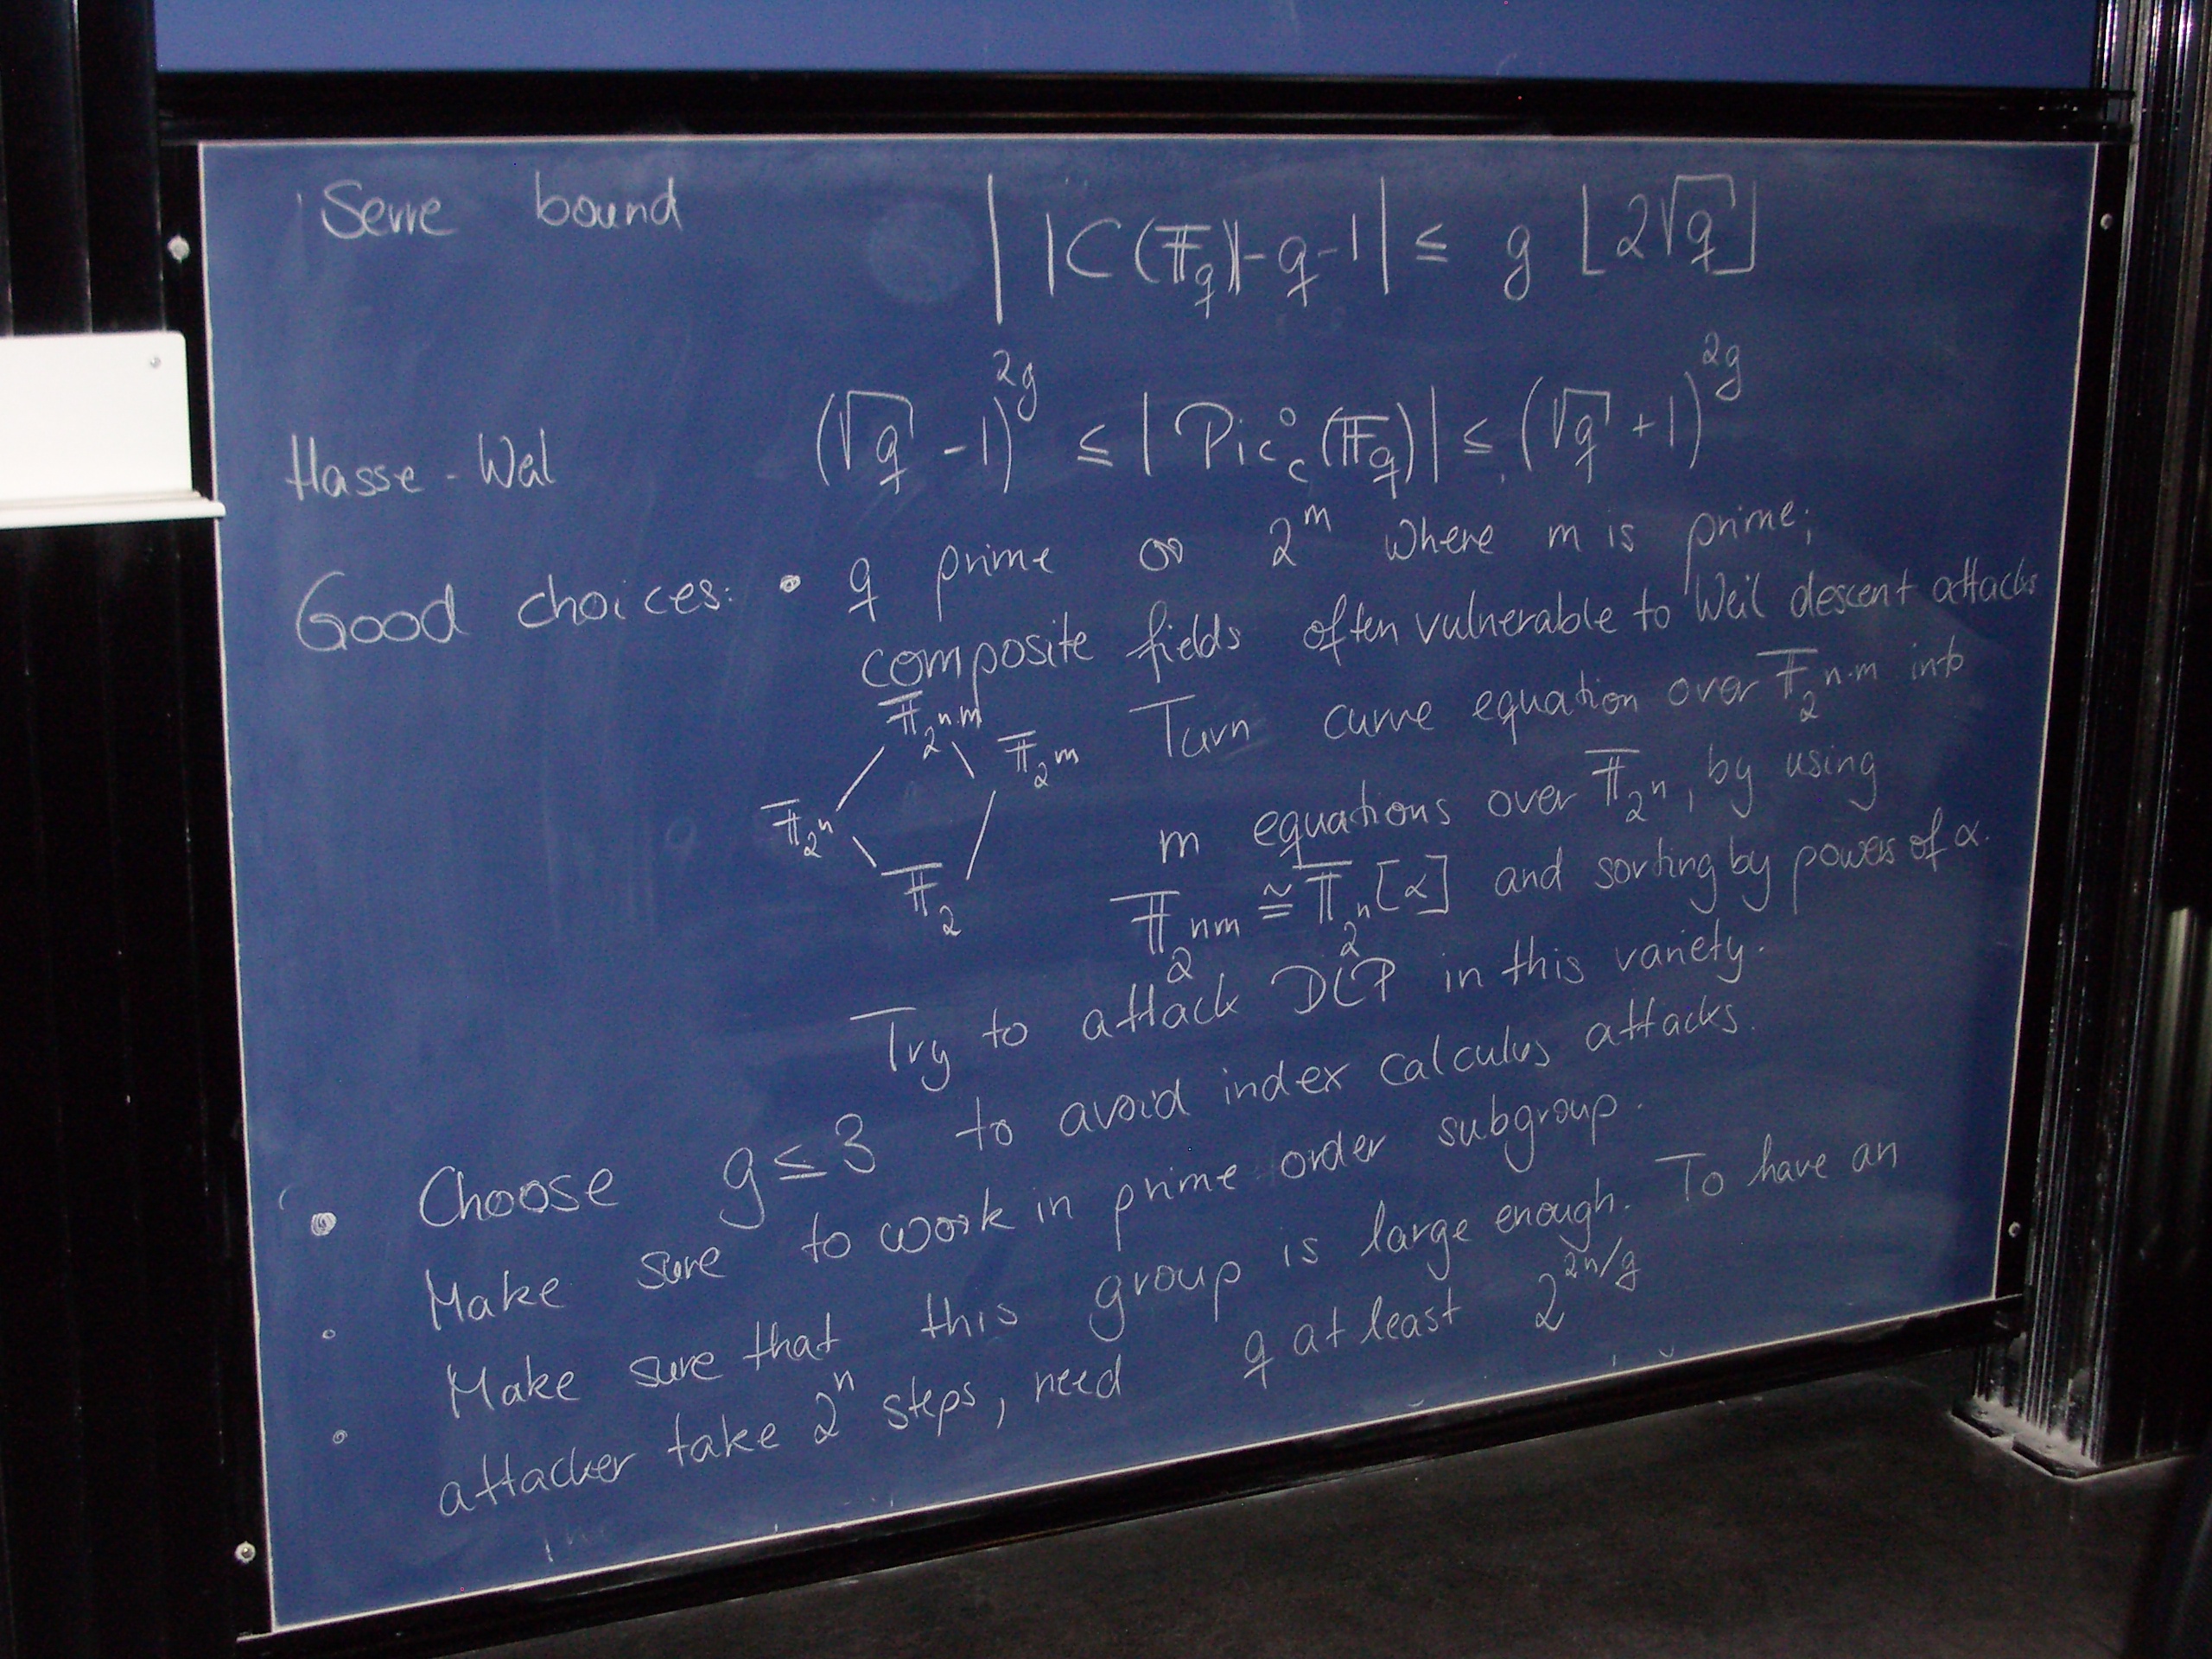 Serre bound | |C(𝔽_q)|-q-1| ≤ g ⌊2√q⌋
Hasse-Weil (√q -1)^{2g} ≤ | Pic^0_C (𝔽_q)| ≤ (√q +1)^{2g}
Good choices: • q prime or 2^m where m is prime;
composite fields often vulnerable to Weil descent attacks
𝔽_{2^{n·m}} Turn curve equation over 𝔽_{2^{n·m}} into
𝔽_{2^m}
𝔽_{2^n} m equations over 𝔽_{2^n}, by using
𝔽_2 𝔽_{2^{nm}} ≅ 𝔽_{2^n}[α] and sorting by powers of α.
Try to attack DLP in this variety.
• Choose g≤3 to avoid index calculus attacks.
• Make sure to work in prime order subgroup.
• Make sure that this group is large enough. To have an
attacker take 2^n steps, need q at least 2^{2n/g}